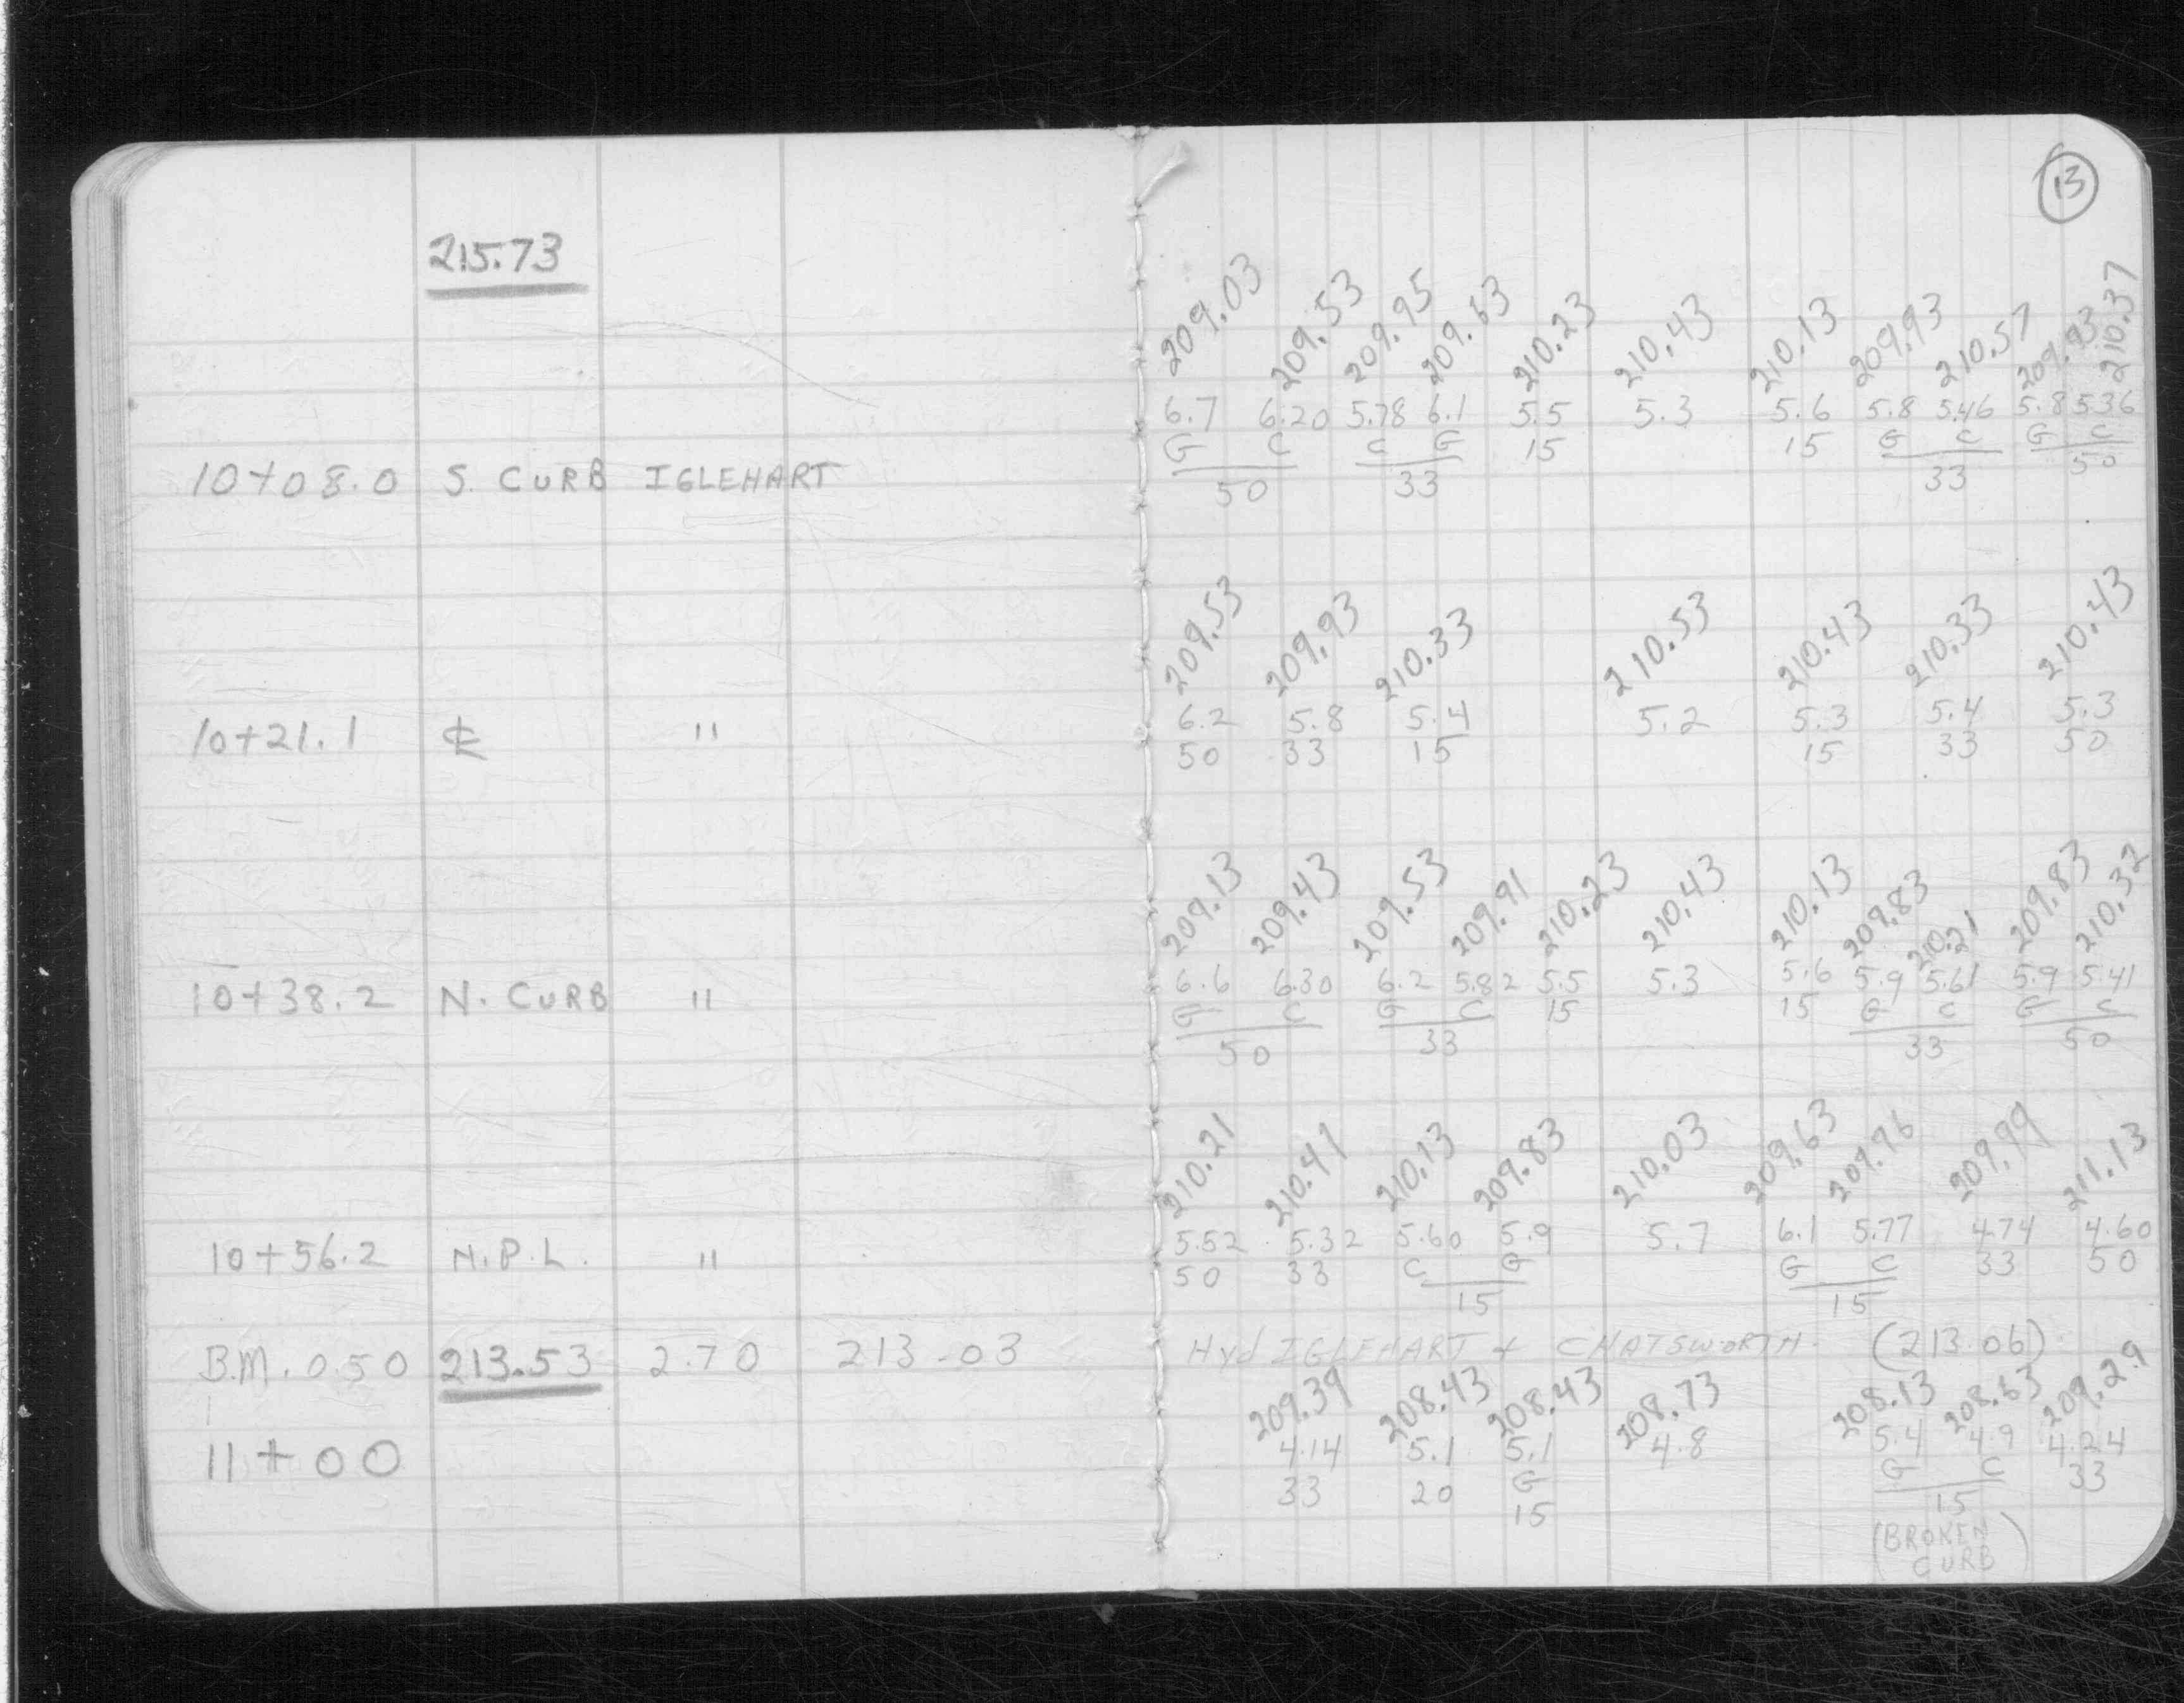 13
215.73
209.03 209.53 209.95 209.63 210.23 210.43 210.13 209.93 210.57 209.93 210.37
6.7 6.20 5.78 6.1 5.5 5.3 5.6 5.8 5.46 5.8 5.36
G C C G 15 15 G C G C
10+08.0 S. CURB IGLEHART 50 33 33 50
209.53 209.93 210.33 210.53 210.43 210.33 210.43
6.2 5.8 5.4 5.2 5.3 5.4 5.3
10+21.1 ℄ " 50 33 15 15 33 50
209.13 209.43 209.53 209.91 210.23 210.43 210.13 209.83 210.21 209.83 210.32
6.6 6.30 6.2 5.82 5.5 5.3 5.6 5.9 5.61 5.9 5.41
10+38.2 N. CURB " G C G C 15 15 G C G C
50 33 33 50
210.21 210.41 210.13 209.83 210.03 209.63 209.96 209.99 211.13
5.52 5.32 5.60 5.9 5.7 6.1 5.77 4.74 4.60
10+56.2 N.P.L. " 50 33 C G G C 33 50
15 15
B.M. 0.50 213.53 2.70 213-03 Hyd IGLEHART + CHATSWORTH. (213.06)
209.39 208.43 208.43 208.73 208.13 208.63 209.29
11+00 4.14 5.1 5.1 4.8 5.4 4.9 4.24
33 20 G G C 33
15 15
(BROKEN
CURB)